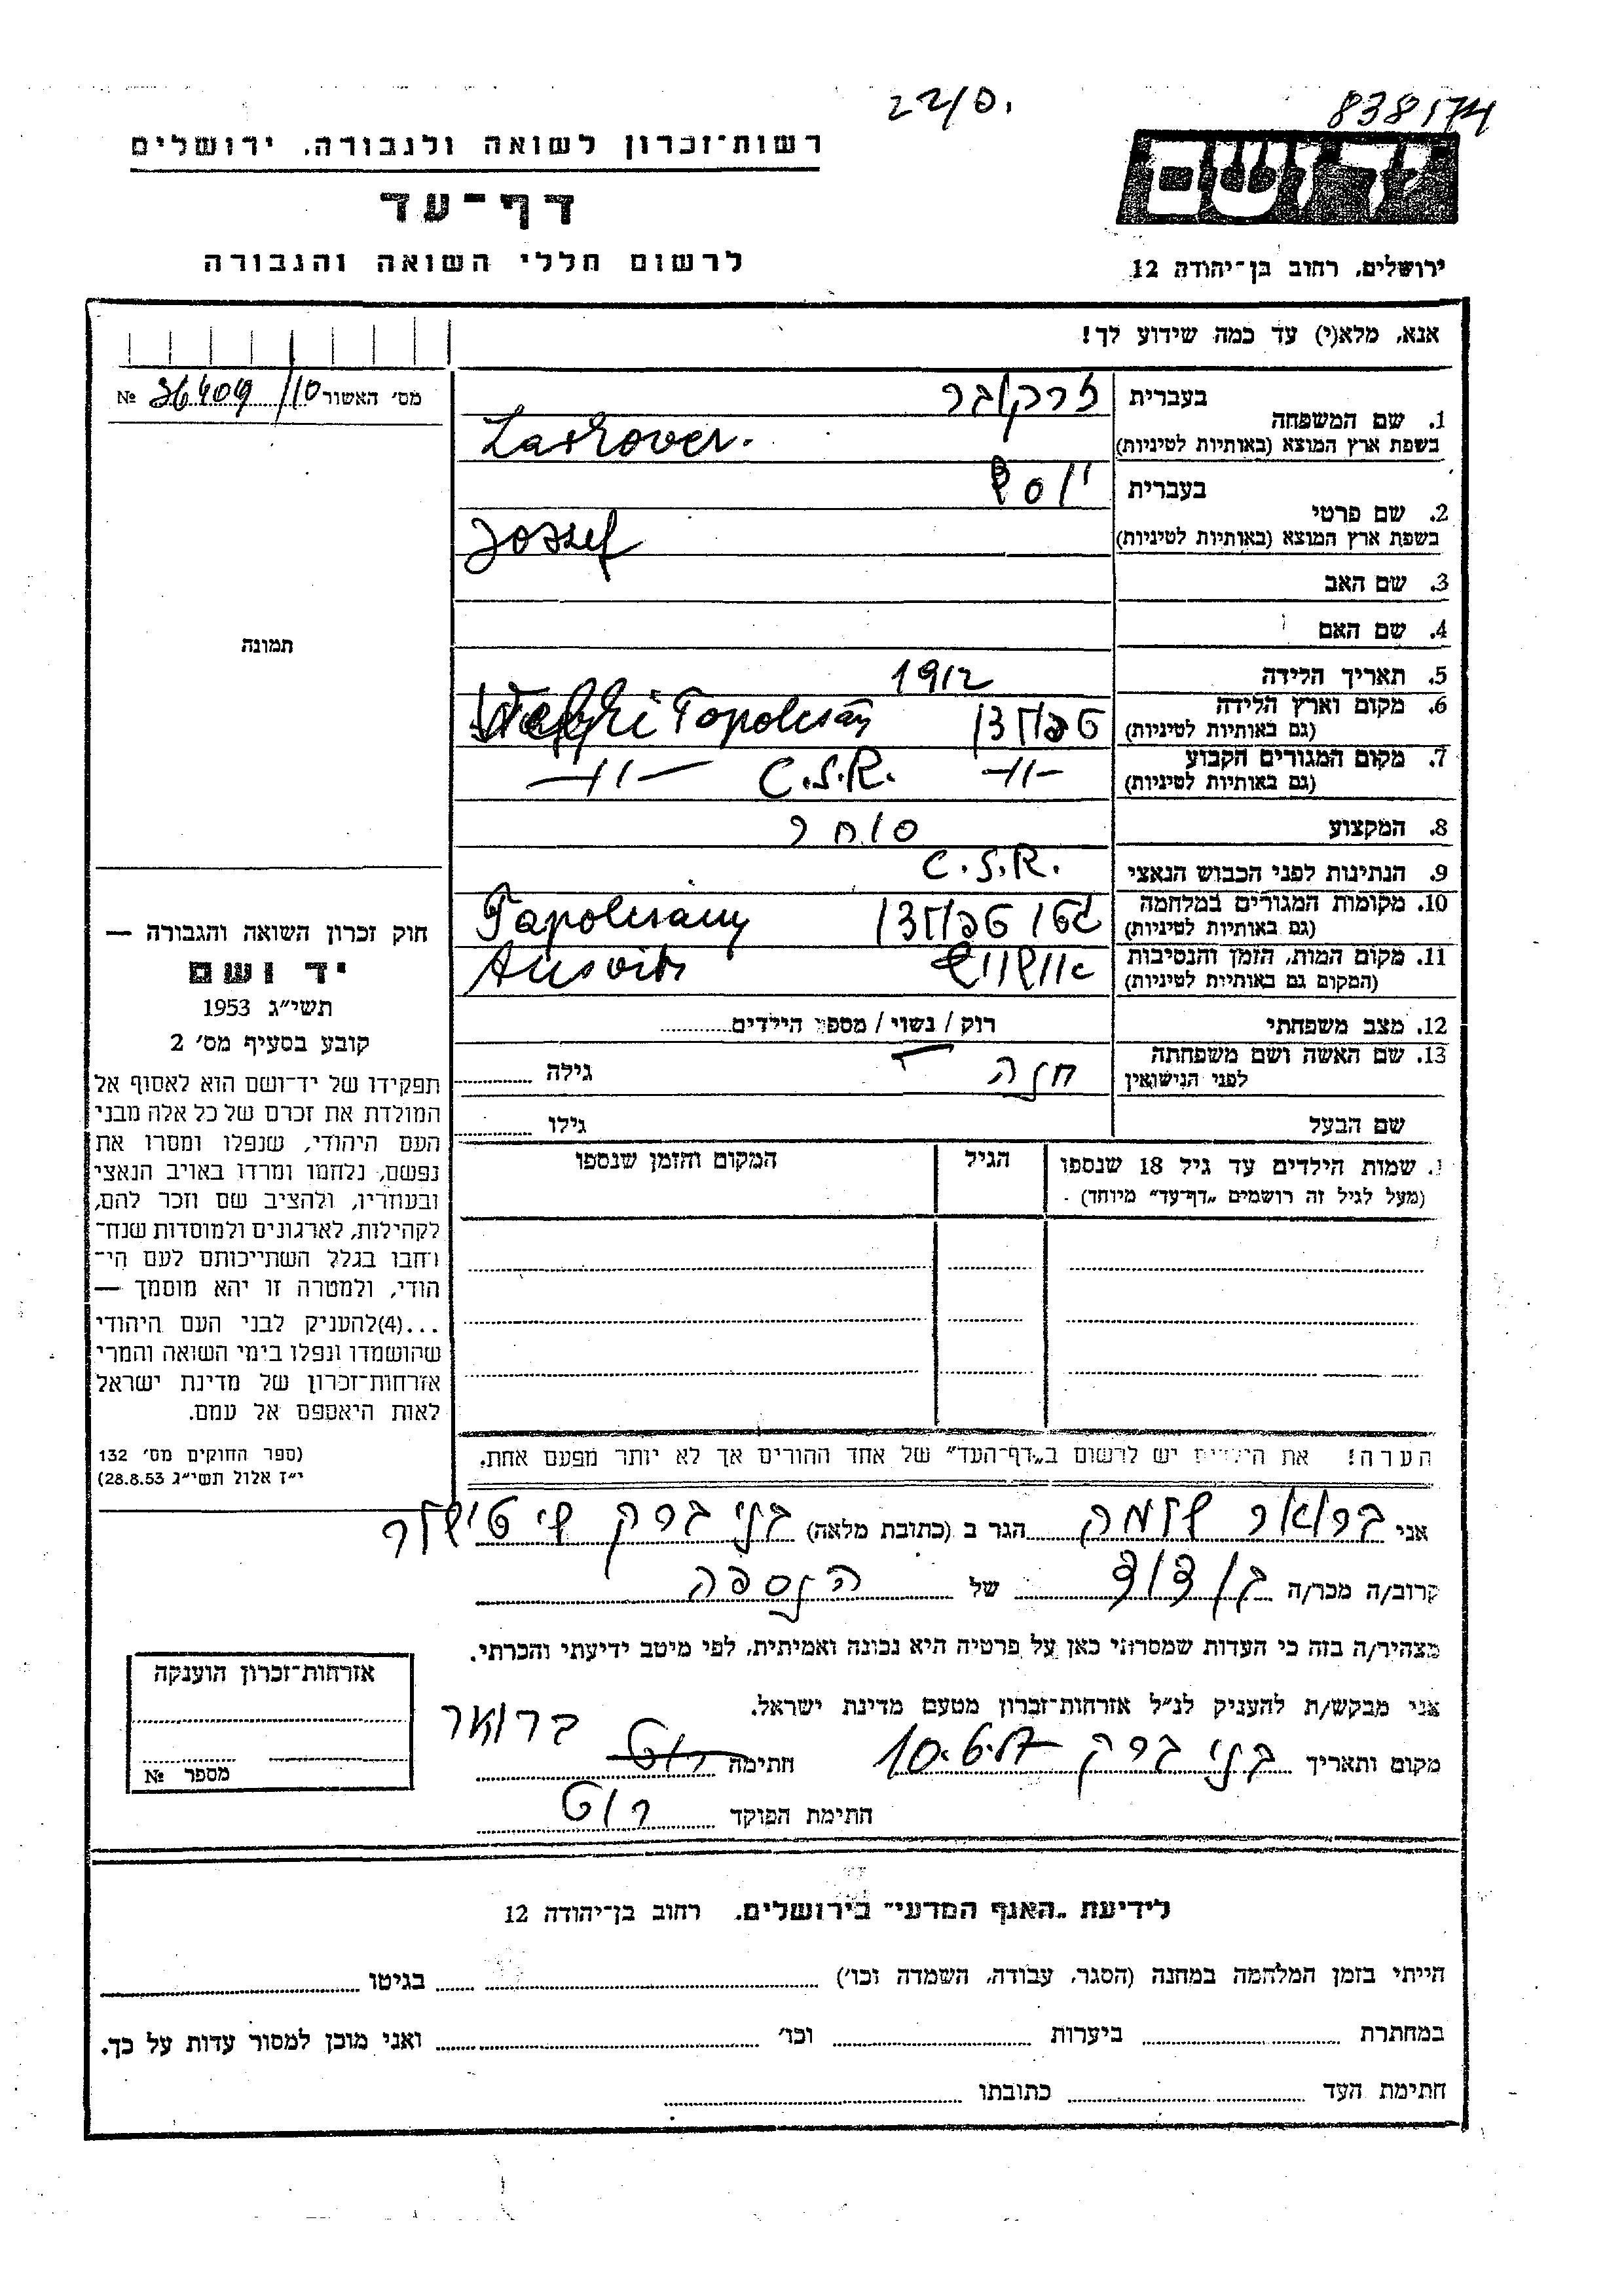 838174
22/0.
יד ושם
רשות־זכרון לשואה ולגבורה, ירושלים
דף־עד
ירושלים, רחוב בן־יהודה 12
לרשום חללי השואה והגבורה
אנא, מלא(י) עד כמה שידוע לך!
מס׳ האשור 10/ 36409 №
1. שם המשפחה
בעברית
בשפת ארץ המוצא (באותיות לטיניות)
2. שם פרטי
בעברית יוסף
בשפת ארץ המוצא (באותיות לטיניות) Jossef
3. שם האב
4. שם האם
תמונה
5. תאריך הלידה 1912
6. מקום וארץ הלידה
(גם באותיות לטיניות) Topolcsán
7. מקום המגורים הקבוע
(גם באותיות לטיניות) -//- C.S.R. -//-
8. המקצוע סוחר
9. הנתינות לפני הכבוש הנאצי C.S.R.
10. מקומות המגורים במלחמה
(גם באותיות לטיניות) Tapolcsany
11. מקום המות, הזמן והנסיבות
(המקום גם באותיות לטיניות) Ausvits
12. מצב משפחתי רוק / נשוי / מספר הילדים
13. שם האשה ושם משפחתה
לפני הנישואין חנה גילה
שם הבעל גילו
שמות הילדים עד גיל 18 שנספו הגיל המקום והזמן שנספו
(מעל לגיל זה רושמים „דף־עד” מיוחד)
הערה! את הילדים יש לרשום ב„דף־העד” של אחד ההורים אך לא יותר מפעם אחת.
חוק זכרון השואה והגבורה —
יד ושם
תשי״ג 1953
קובע בסעיף מס׳ 2
תפקידו של יד־ושם הוא לאסוף אל
המולדת את זכרם של כל אלה מבני
העם היהודי, שנפלו ומסרו את
נפשם, נלחמו ומרדו באויב הנאצי
ובעוזריו, ולהציב שם וזכר להם,
לקהילות, לארגונים ולמוסדות שנח־
רחבו בגלל השתייכותם לעם הי־
הודי, ולמטרה זו יהא מוסמך —
...(4)להעניק לבני העם היהודי
שהושמדו ונפלו בימי השואה והמרי
אזרחות־זכרון של מדינת ישראל
לאות היאספם אל עמם.
(ספר החוקים מס׳ 132
י״ז אלול תשי״ג 28.8.53)
אני ברואר שלמה הגר ב (כתובת מלאה) בני ברק
קרוב/ה מכר/ה בן דוד של הנספה
מצהיר/ה בזה כי העדות שמסרתי כאן על פרטיה היא נכונה ואמיתית, לפי מיטב ידיעתי והכרתי.
אני מבקש/ת להעניק לנ״ל אזרחות־זכרון מטעם מדינת ישראל.
מקום ותאריך בני ברק חתימה רוט ברואר
חתימת הפוקד רוט
אזרחות־זכרון הוענקה
מספר №
לידיעת „האגף המדעי” בירושלים, רחוב בן־יהודה 12
הייתי בזמן המלחמה במחנה (הסגר, עבודה, השמדה וכו׳) בגיטו
במחתרת ביערות וכו׳ ואני מוכן למסור עדות על כך.
חתימת העד כתובתו